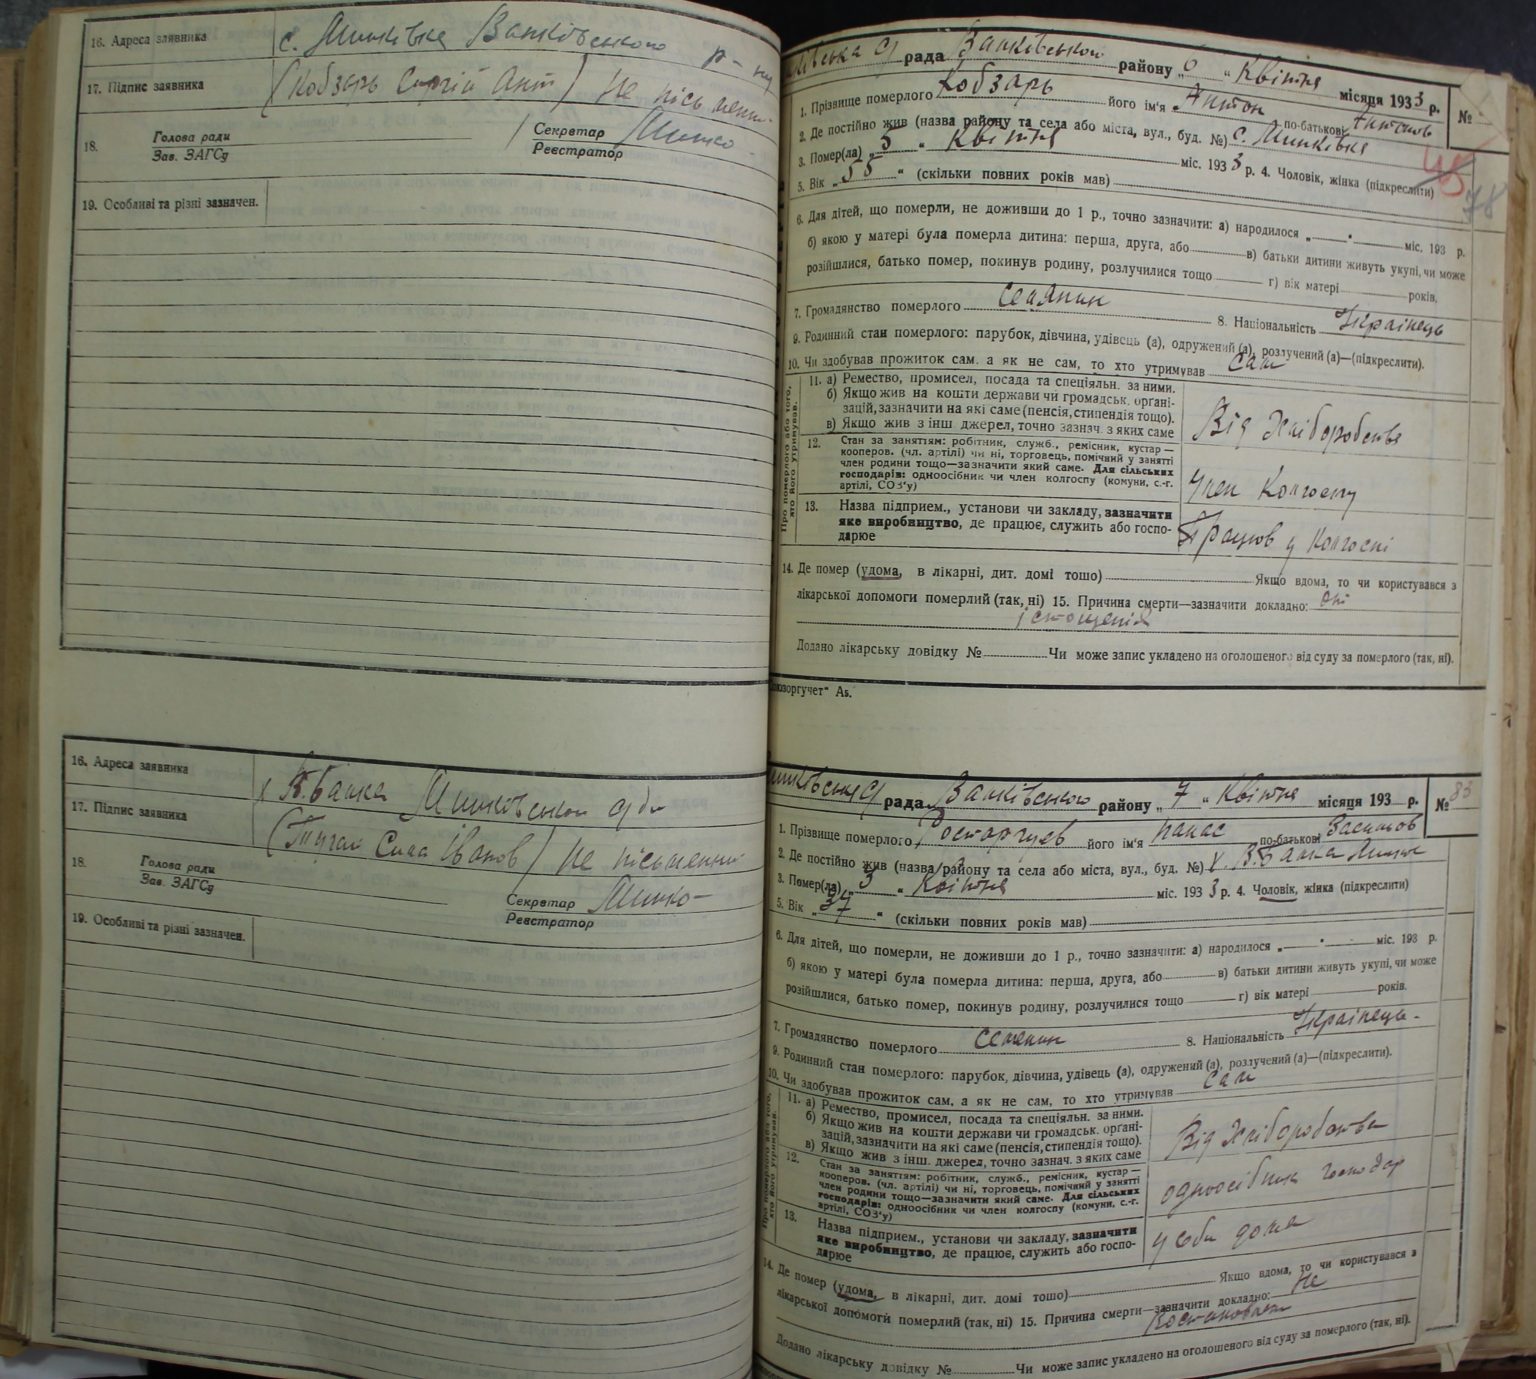 16. Адреса заявника с. Минківка Валківського р-ну
17. Підпис заявника (Кобзарь Сергій Ант) Не письменн.
18. Голова ради
Зав. ЗАГСу
Секретар
Реєстратор Минко
19. Особливі та різні зазначен.
16. Адреса заявника х В.балка Минківської с/ради
17. Підпис заявника Сила Іванов) Не письменний
18. Голова ради
Зав. ЗАГСу
Секретар
Реєстратор Минко
19. Особливі та різні зазначен.
рада Валківського району „6“ Квітня місяця 1933 р. №
1. Прізвище померлого Кобзарь його ім'я Антон по-батькові Антонов
2. Де постійно жив (назва району та села або міста, вул., буд. №) с. Минківка
3. Помер(ла) „5“ Квітня міс. 1933 р. 4. Чоловік, жінка (підкреслити)
78
5. Вік „55“ (скільки повних років мав)
6. Для дітей, що померли, не доживши до 1 р., точно зазначити: а) народилося „ “ міс. 193 р.
б) якою у матері була померла дитина: перша, друга, або в) батьки дитини живуть укупі, чи може
розійшлися, батько помер, покинув родину, розлучилися тощо г) вік матері років.
7. Громадянство померлого селянин 8. Національність Українець
9. Родинний стан померлого: парубок, дівчина, удівець (а), одружений (а), розлучений (а)—(підкреслити).
10. Чи здобував прожиток сам, а як не сам, то хто утримував сам
Про померлого або того, хто його утримував.
11. а) Ремество, промисел, посада та спеціяльн. за ними.
б) Якщо жив на кошти держави чи громадськ. органі-
зацій, зазначити на які саме (пенсія, стипендія тощо).
в) Якщо жив з інш. джерел, точно зазнач. з яких саме
Від Хліборобства
12. Стан за заняттям: робітник, служб., ремісник, кустар—
кооперов. (чл. артілі) чи ні, торговець, помічний у занятті
член родини тощо—зазначити який саме. Для сільських
господарів: одноосібник чи член колгоспу (комуни, с.-г.
артілі, СОЗ'у)
Член Колгоспу
13. Назва підприєм., установи чи закладу, зазначити
яке виробництво, де працює, служить або госпо-
дарює
Працюв у Колгоспі
14. Де помер (удома, в лікарні, дит. домі тощо) Якщо вдома, то чи користувався з
лікарської допомоги померлий (так, ні) 15. Причина смерти—зазначити докладно: від
істощенія
Додано лікарську довідку № Чи може запис укладено на оголошеного від суду за померлого (так, ні).
рада Валківського району „7“ Квітня місяця 193 р. № 83
1. Прізвище померлого Росторгуєв його ім'я Панас по-батькові
2. Де постійно жив (назва району та села або міста, вул., буд. №) х. В Балка
3. Помер(ла) „3“ Квітня міс. 1933 р. 4. Чоловік, жінка (підкреслити)
5. Вік „37“ (скільки повних років мав)
6. Для дітей, що померли, не доживши до 1 р., точно зазначити: а) народилося „ “ міс. 193 р.
б) якою у матері була померла дитина: перша, друга, або в) батьки дитини живуть укупі, чи може
розійшлися, батько помер, покинув родину, розлучилися тощо г) вік матері років.
7. Громадянство померлого селянин 8. Національність Українець
9. Родинний стан померлого: парубок, дівчина, удівець (а), одружений (а), розлучений (а)—(підкреслити).
10. Чи здобував прожиток сам, а як не сам, то хто утримував сам
11. а) Ремество, промисел, посада та спеціяльн. за ними.
б) Якщо жив на кошти держави чи громадськ. органі-
зацій, зазначити на які саме (пенсія, стипендія тощо).
в) Якщо жив з інш. джерел, точно зазнач. з яких саме
Від Хліборобства
12. Стан за заняттям: робітник, служб., ремісник, кустар—
кооперов. (чл. артілі) чи ні, торговець, помічний у занятті
член родини тощо—зазначити який саме. Для сільських
господарів: одноосібник чи член колгоспу (комуни, с.-г.
артілі, СОЗ'у)
одноосібник господар
13. Назва підприєм., установи чи закладу, зазначити
яке виробництво, де працює, служить або госпо-
дарює
у себе дома
14. Де помер (удома, в лікарні, дит. домі тощо) Якщо вдома, то чи користувався з
лікарської допомоги померлий (так, ні) 15. Причина смерти—зазначити докладно: Не
Додано лікарську довідку № Чи може запис укладено на оголошеного від суду за померлого (так, ні).